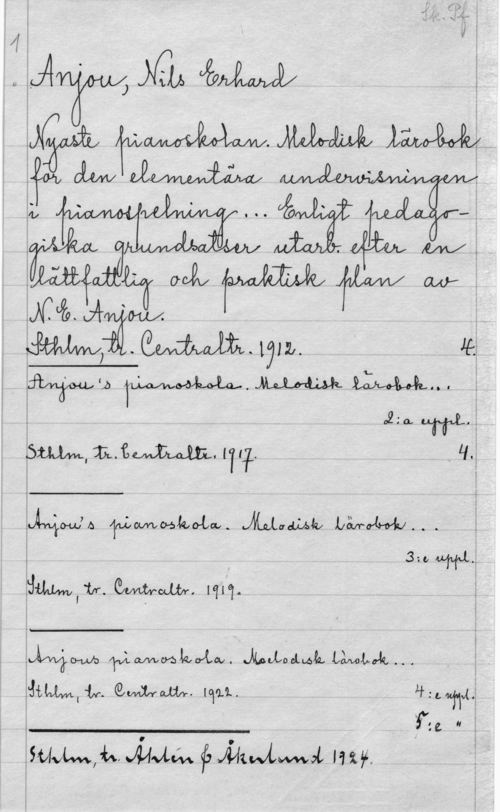 Sk. Pf
1
Anjou, Nils Erhard
Nyaste pianoskolan. Melodisk lärobok
för den elementära undervisningen
i pianospelning... Enligt pedago-
giska grundsatser utarb. efter en
lättfattlig och praktisk plan av
N. E. Anjou.
Sthlm, tr. Centraltr. 1912. 4.
Anjou's pianoskola. Melodisk lärobok...
2:a uppl.
Sthlm, tr. Centraltr. 1917. 4.
Anjou's pianoskola. Melodisk lärobok...
3:e uppl.
Sthlm, tr. Centraltr. 1919.
Anjous pianoskola. Melodisk lärobok...
Sthlm, tr. Centraltr. 1922. 4:e uppl.
5:e "
Sthlm, tr. Åhlén & Åkerlund 1924.